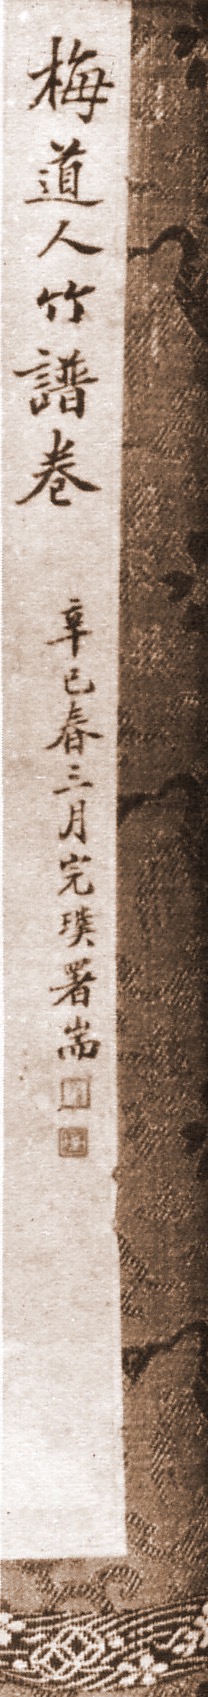 梅道人竹譜卷
辛巳春三月完璞署耑